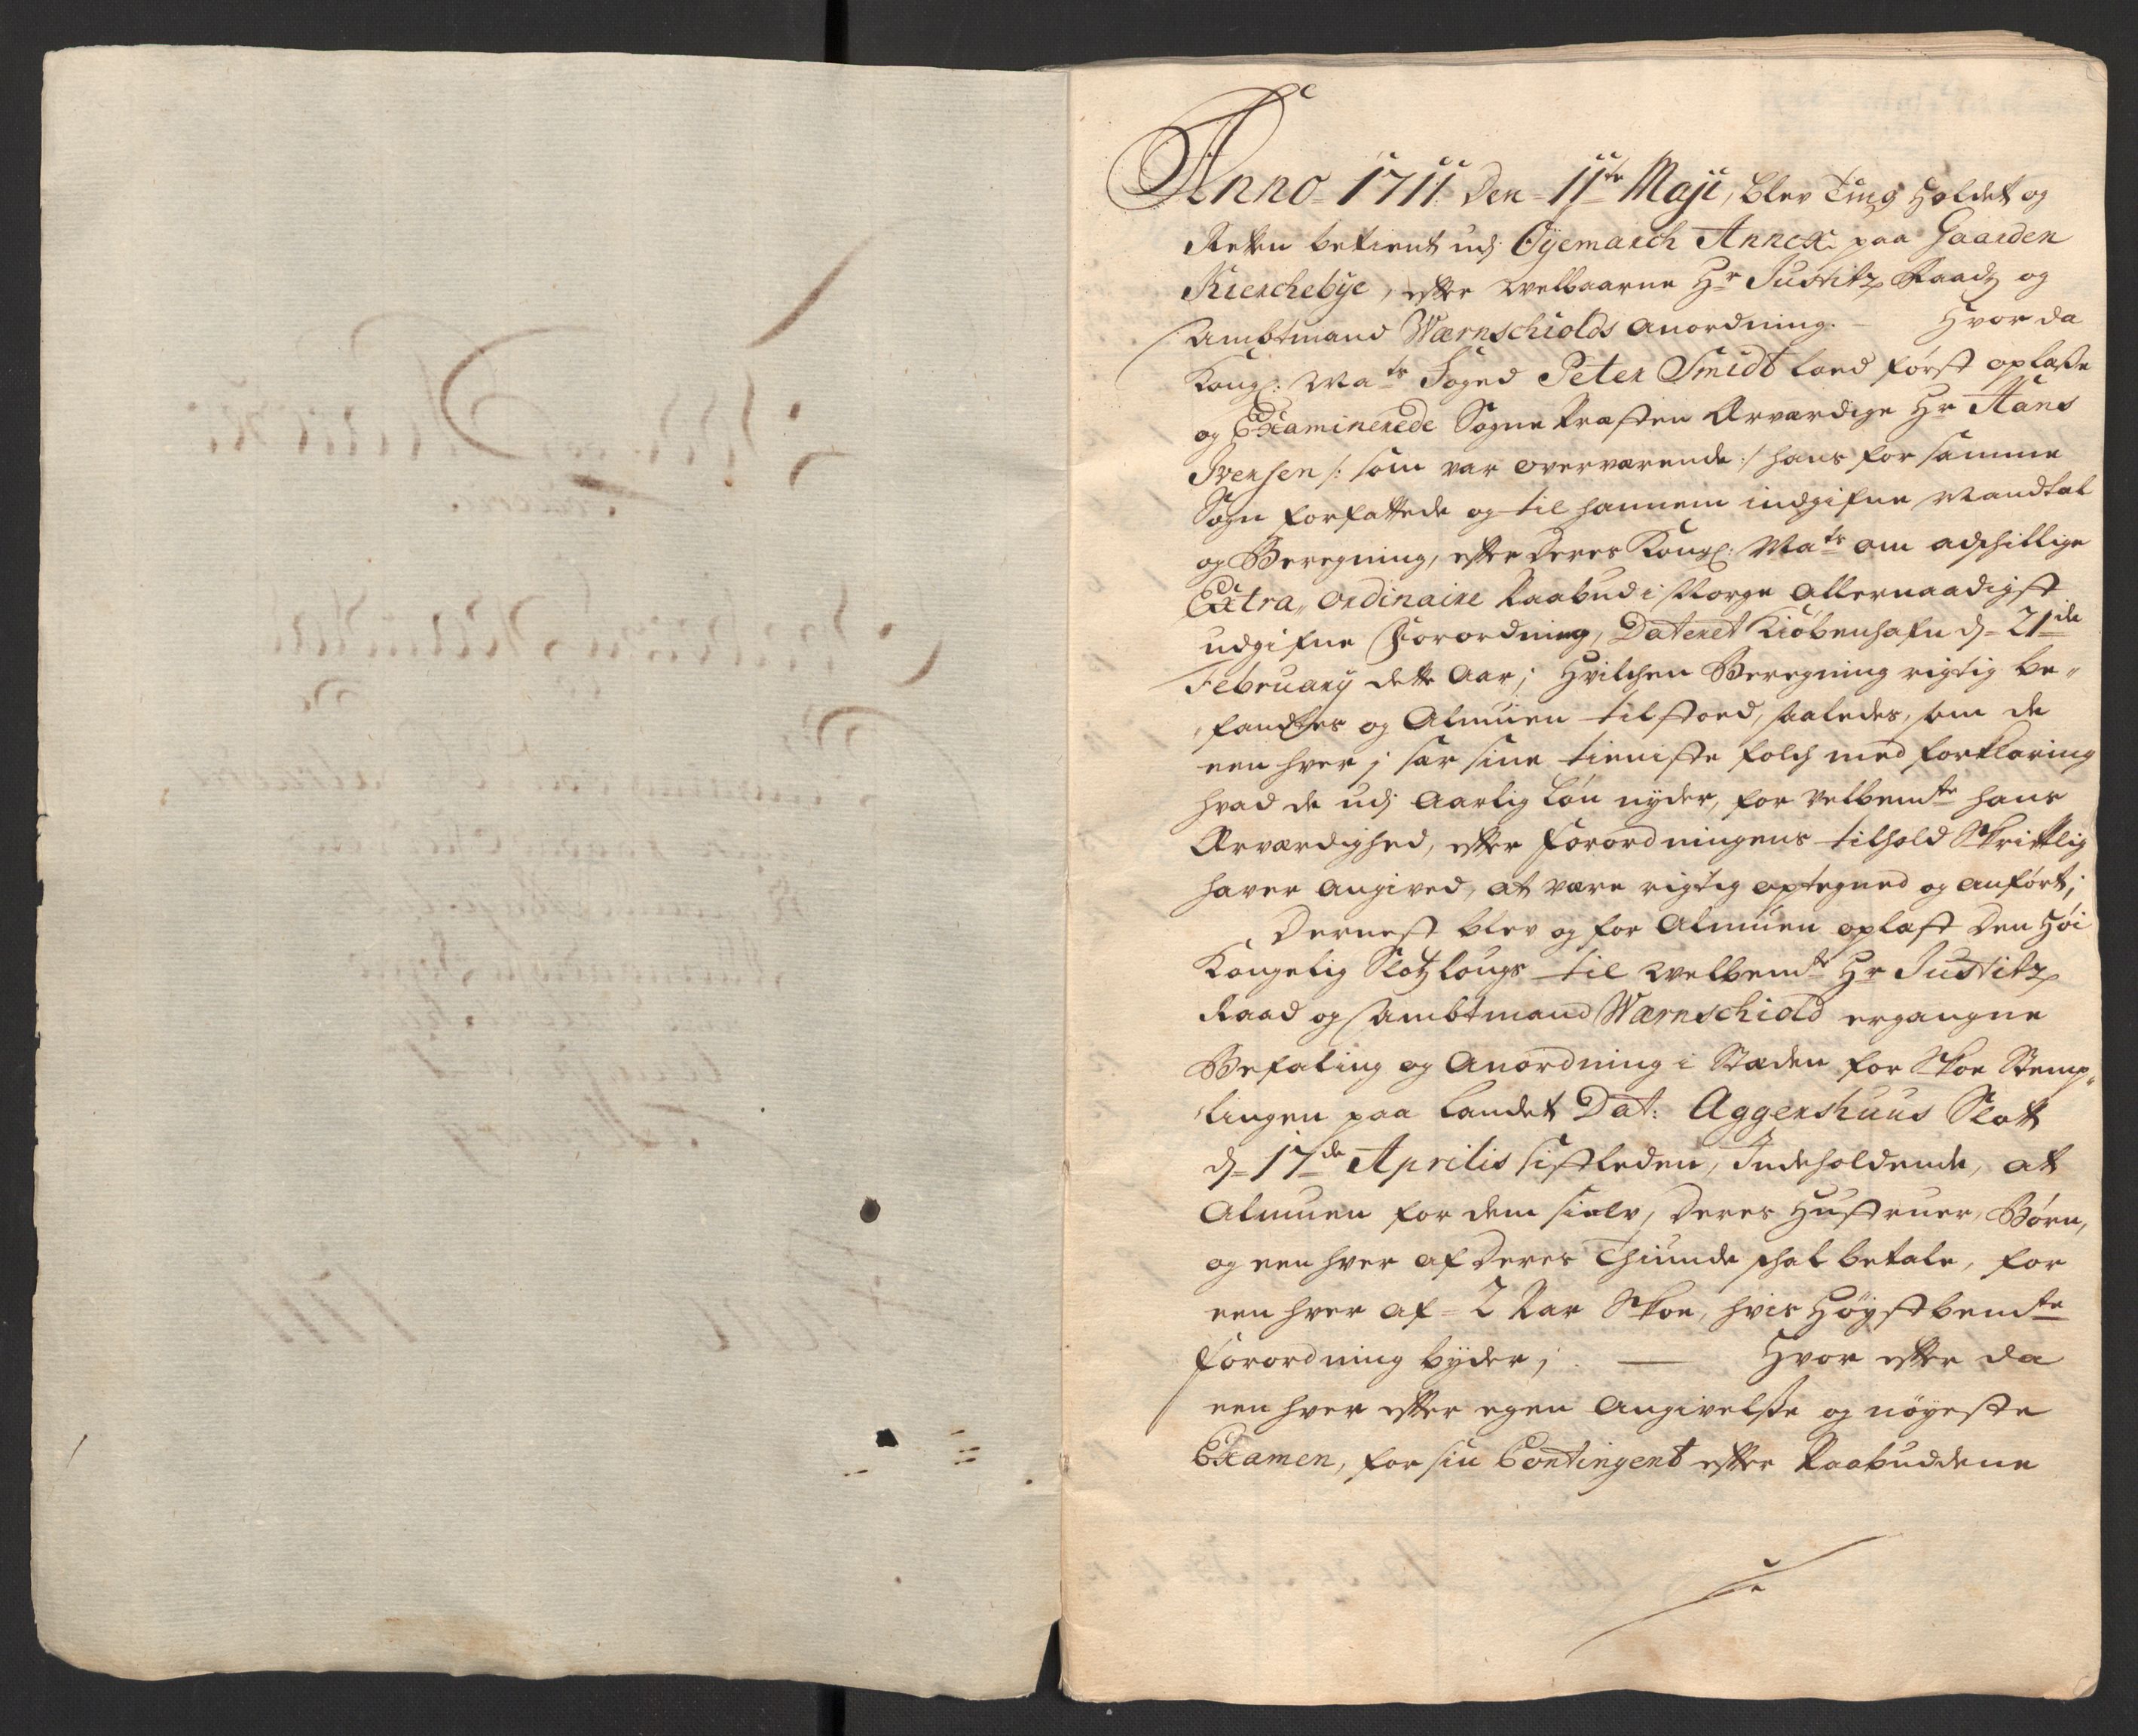 Anno 1711 Den 11te Maji, blev Ting Holdet og
Retten betient udj Öÿemarch Annex paa Gaarden
Kierchebÿe, efter welbaarne Hr Justitz Raadz og
Ambtmand Wærnschiolds anordning. — Hvor da
Kongl: Mats Foged Peter Smidt loed först oplæse
og Examinerede Sogne Præsten Ærværdige Hr Hans
Iversen /: som var overværende :/ hans for samme
Sogn forfattede og til hannem indgifne Mandtal
og Beregning, efter deres Kongl: Mats om adschillige
Extra„ordinaire Paabud i Norge allernaadigst
udgifne Forordning, Dateret Kiöbenhafn d= 21de
February dette Aar; Hvilchen Beregning rigtig be„
fandtes og Almuen tilstoed, saaledes, som de
een hver j sær sine tieniste folch med forklaring
hvad de udj Aarlig Lön nyder, for velbemte hans
Ærværdighed, efter Forordningens tilhold Skrifttlig
haver Angived, at være rigtig optegned og anfört;
Dernest blev og for Almuen oplæst Den Höi
Kongelig Slotzlougs til welbemte Hr Justitz
Raad og Ambtmand Wærnschiold ergangne
Befaling og Anordning i Stæden for Skoe Stemp„
lingen paa Landet Dat: Aggershuus Slott
d= 17de Aprilis sistleden, Indeholdende, at
Almuen for dem sielv, deres Hustruer, Börn,
og een hver af deres Thiunde schal betale, for
een hver af = 2 Par Skoe, hvis Höÿstbemte
Forordning bÿder; — Hvor efter da
een hver efter egen Angivelse og nöÿeste
Examen, for sin Contingent efter Paabuddene